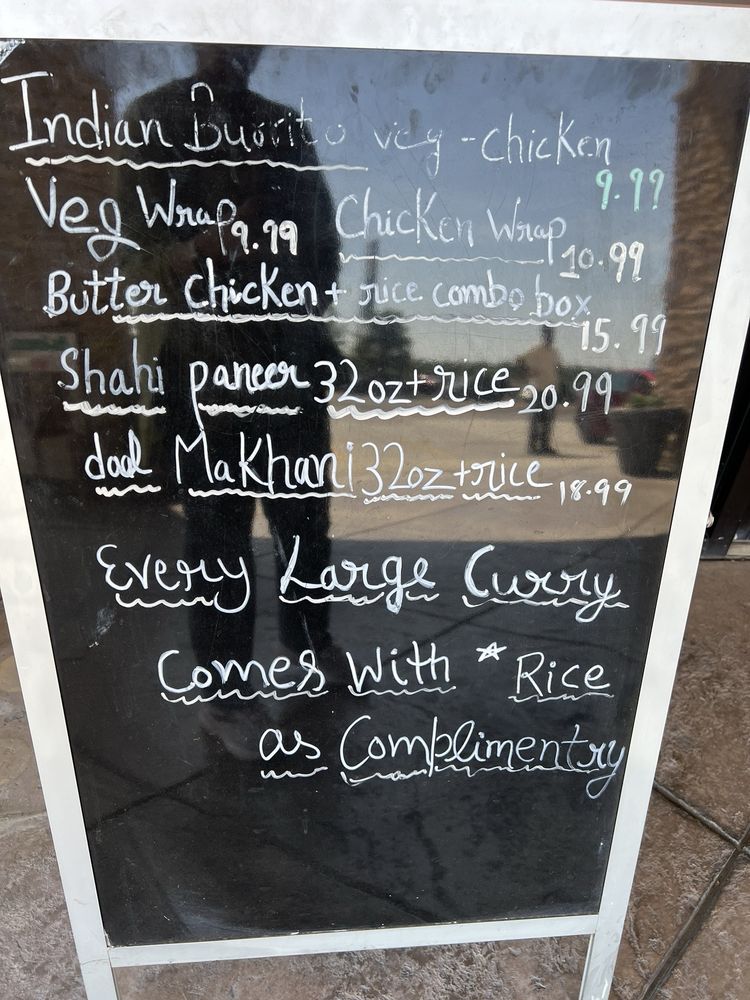 Indian Burrito veg - chicken
9.99
Veg Wrap 9.99 Chicken Wrap
10.99
Butter chicken + rice combo box
15.99
Shahi paneer 32oz + rice 20.99
daal Makhani 32oz + rice 18.99
Every Large Curry
Comes With * Rice
as Complimentry